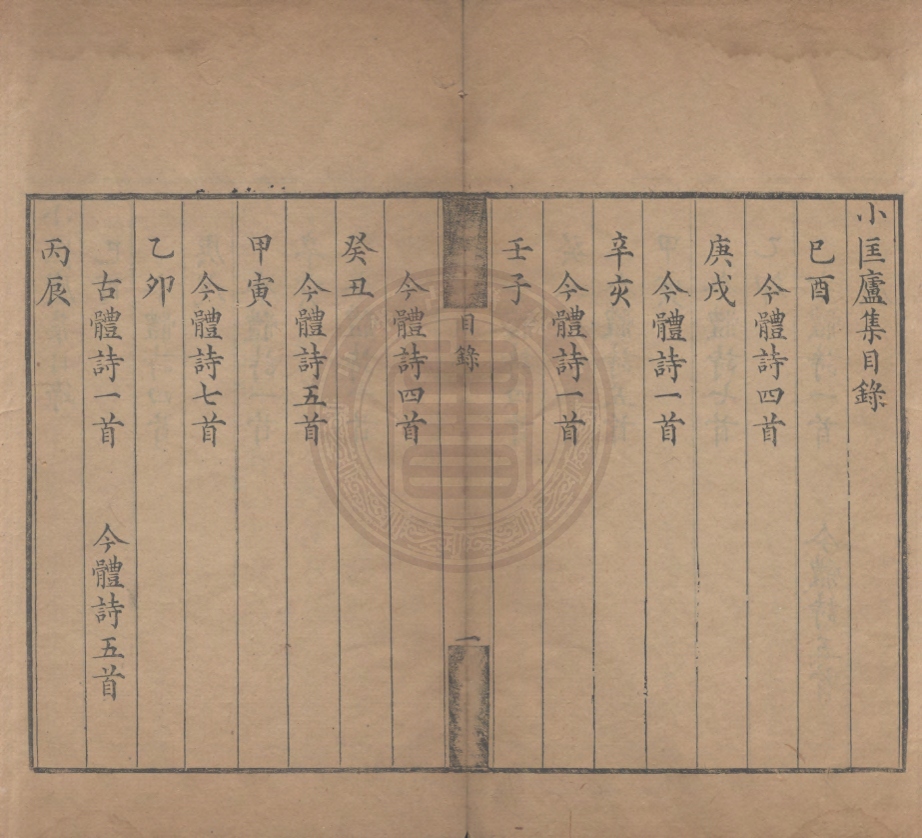 小匡廬集目錄
己酉
今體詩四首
庚戌
今體詩一首
辛亥
今體詩一首
壬子
目錄
一
今體詩四首
癸丑
今體詩五首
甲寅
今體詩七首
乙卯
古體詩一首　今體詩五首
丙辰